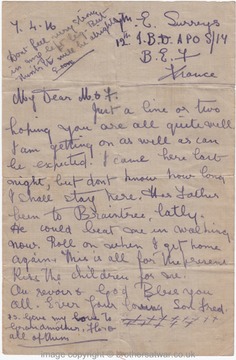 7.4.16
E. Surreys
12th I.B.D. APO S/17
B.E.F
France
Dont feel very strong
in my left leg. But
think it will be alright
My Dear M & F.
Just a line or two
hoping you are all quite well
I am getting on as well as can
be expected. I came here last
night, but dont know how long
I shall stay here. Has Father
been to Braintree, latly.
He could beat me in walking
now. Roll on when I get home
again. This is all for the present
Kiss the children for me.
Au revoir & God Bless you
all. Ever your loving Son Fred
Give my love to
Grandmother. Hers
all of them
image copyright @ motherswar.co.uk